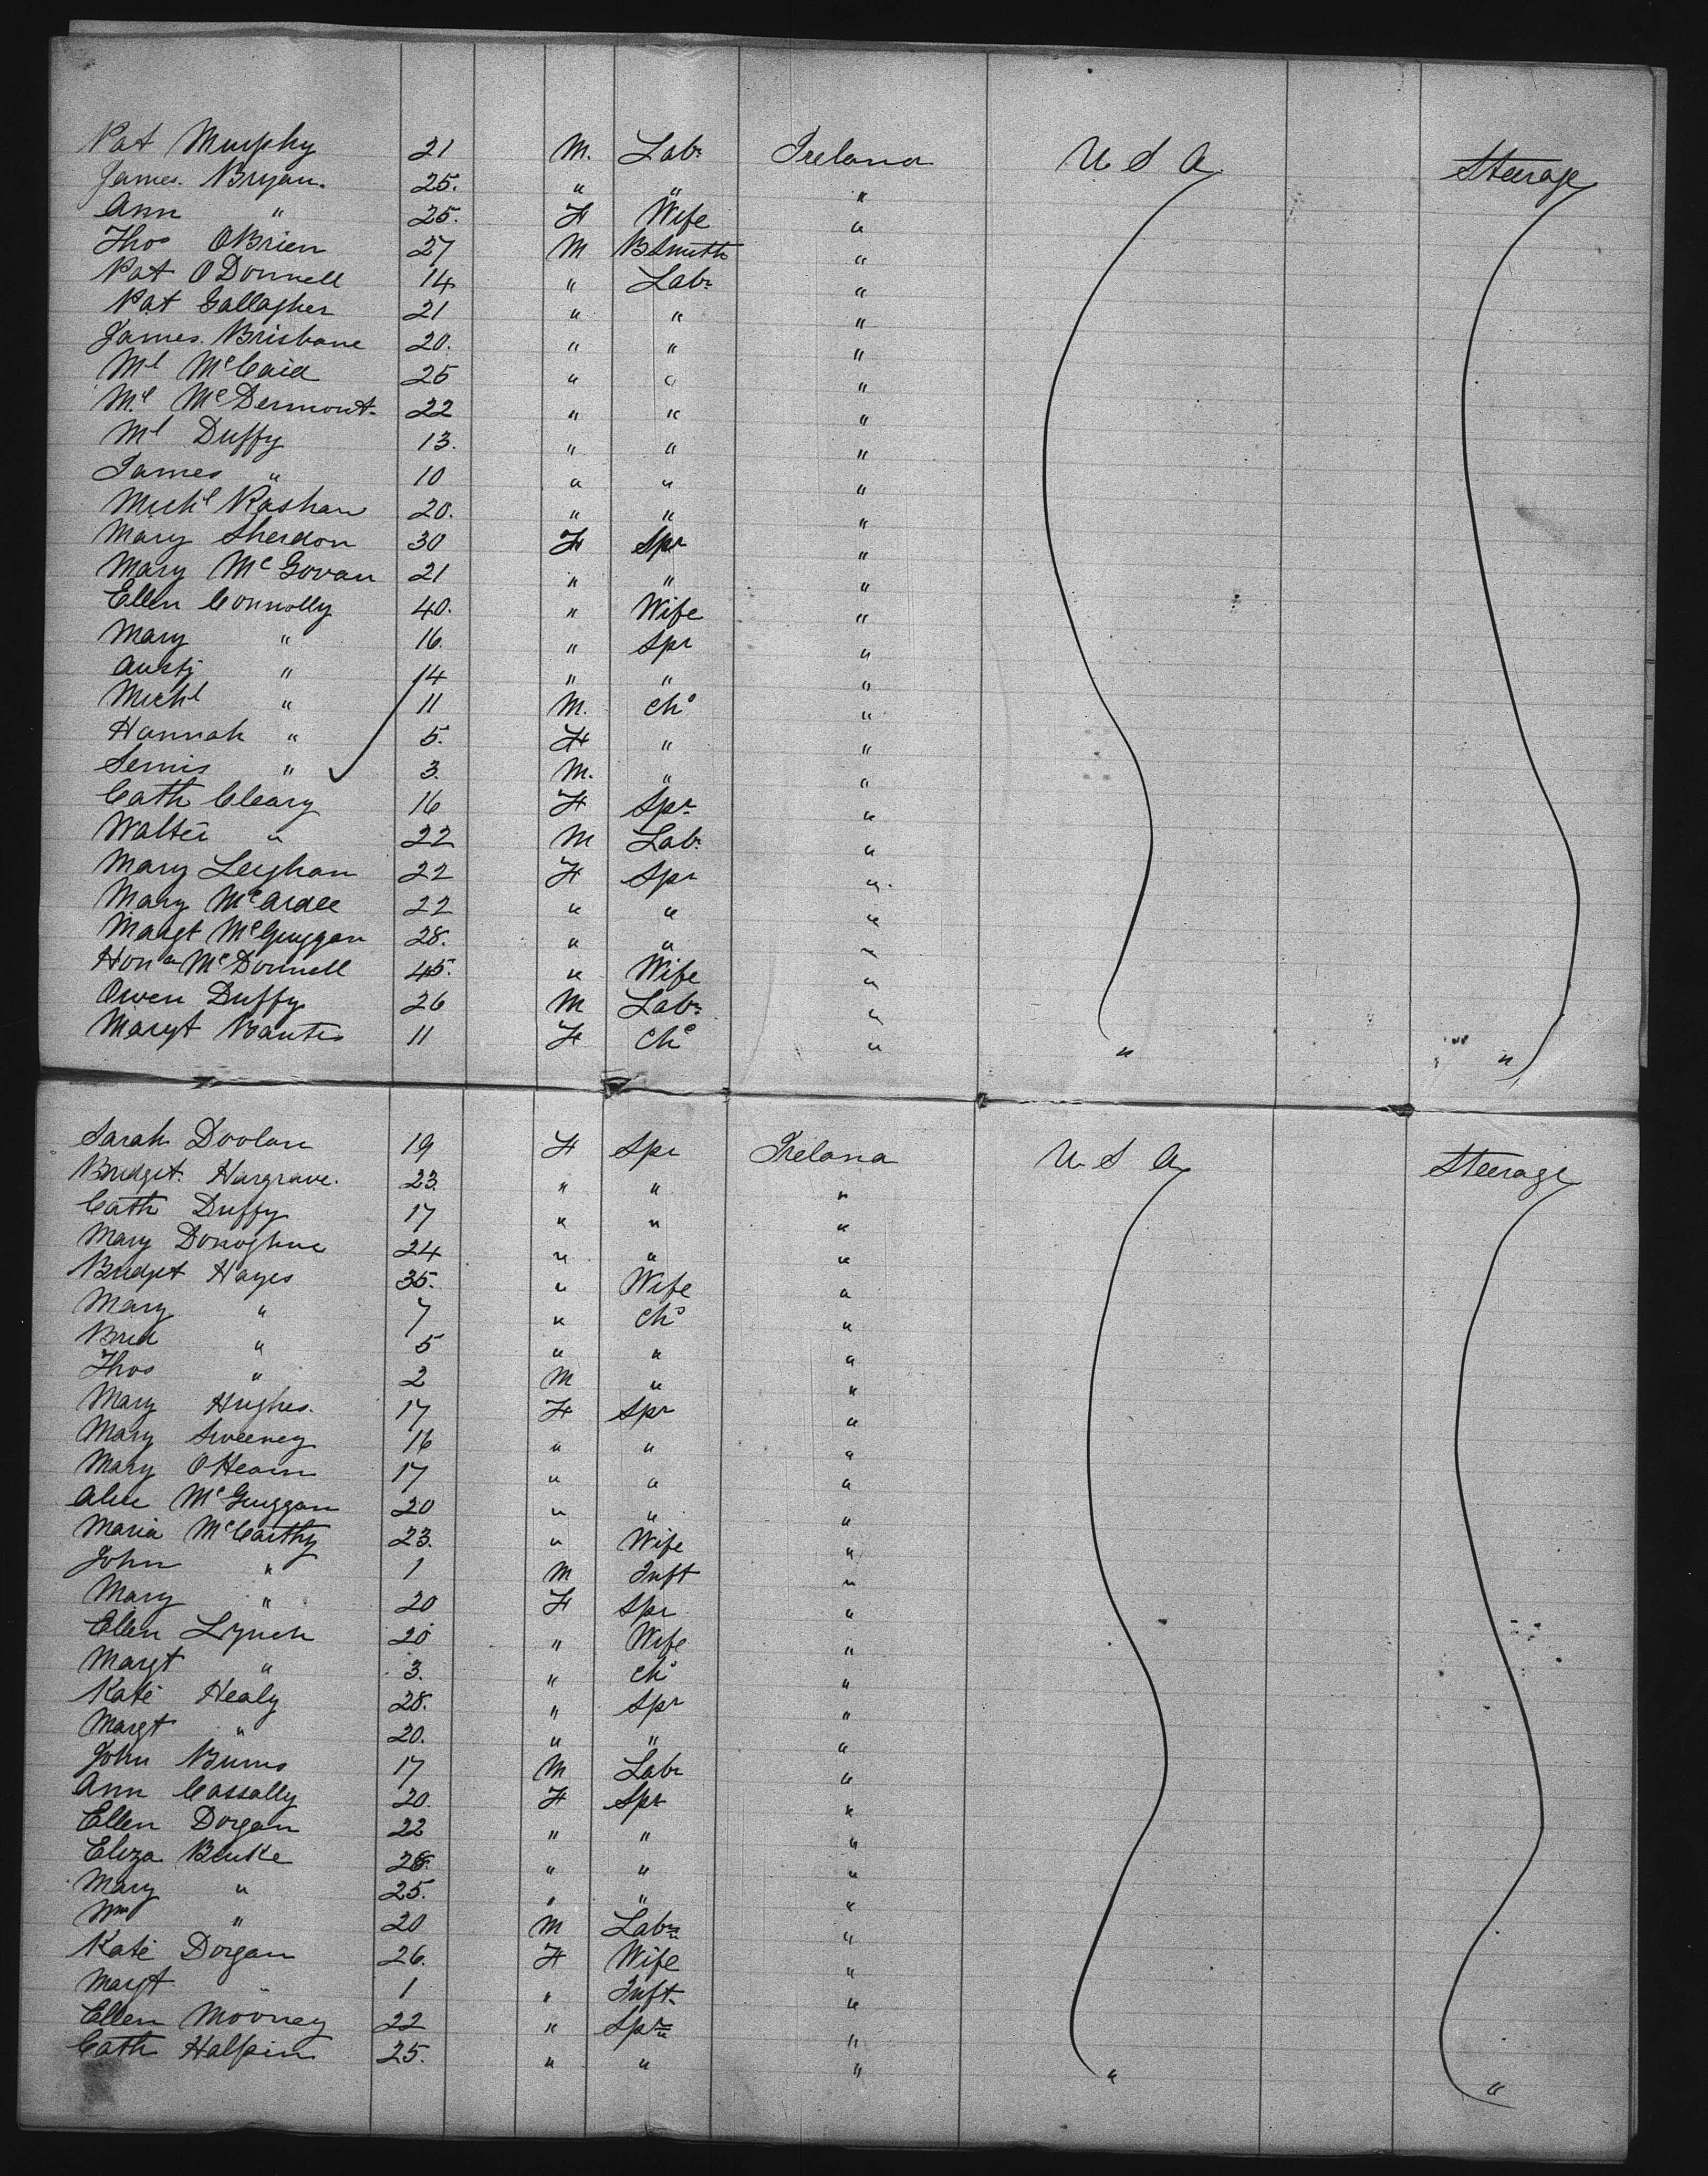 Pat Murphy 21 M. Labr Ireland U S A Steerage
James. Bryan. 25. " " "
Ann " 25. F Wife "
Thos OBrien 27 M BSmith "
Pat ODonnell 14 " Labr "
Pat Gallagher 21 " " "
James. Brisbane 20. " " "
Ml McCaid 25 " " "
Ml McDermont. 22 " " "
Ml Duffy 13. " " "
James " 10 " " "
Michl 20. " " "
Mary Sherdon 30 F Spr "
Mary McGovan 21 " " "
Ellen Connolly 40. " Wife "
Mary " 16. " Spr "
Austy " 14 " " "
Michl " 11 M. Chd "
Hannah " 5. F " "
" 3. M. " "
Cath Cleary 16 F Spr "
Walter " 22 M Labr "
Mary Leyhan 22 F Spr "
Mary McArdle 22 " " "
Margt McGuggan 28. " " "
Hona McDonnell 45. " Wife "
Owen Duffy 26 M Labr "
Margt 11 F Chd " " "
Sarah Doolan 19 F Spr Ireland U S A Steerage
Bridget. Hargrave. 23. " " "
Cath Duffy 17 " " "
Mary Donoghue 24 " " "
Bridget Hayes 35. " Wife "
Mary " 7 " Chd "
Brid " 5 " " "
Thos " 2 M " "
Mary Hughes. 17 F Spr "
Mary Sweeney 16 " " "
Mary OHearn 17 " " "
Alice McGuggan 20 " " "
Maria McCarthy 23. " Wife "
John " 1 M Inft "
Mary " 20 F Spr "
Ellen Lynch 20 " Wife "
Margt " 3. " Chd "
Kate Healy 28. " Spr "
Margt " 20. " " "
John Burns 17 M Labr "
Ann Cassally 20. F Spr "
Ellen Dorgan 22 " " "
Eliza Burke 28. " " "
Mary " 25. " " "
Wm " 20 M Labr "
Kate Dorgan 26. F Wife "
Margt " 1 " Inft. "
Ellen Mooney 22 " Spr "
Cath Halpin 25. " " " " "